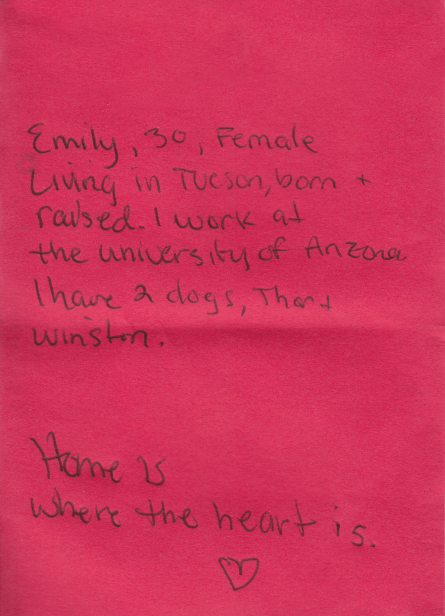 Emily, 30, Female
Living in Tucson, born +
raised. I work at
the university of Arizona
I have 2 dogs, Thor +
winston.
Home is
where the heart is.